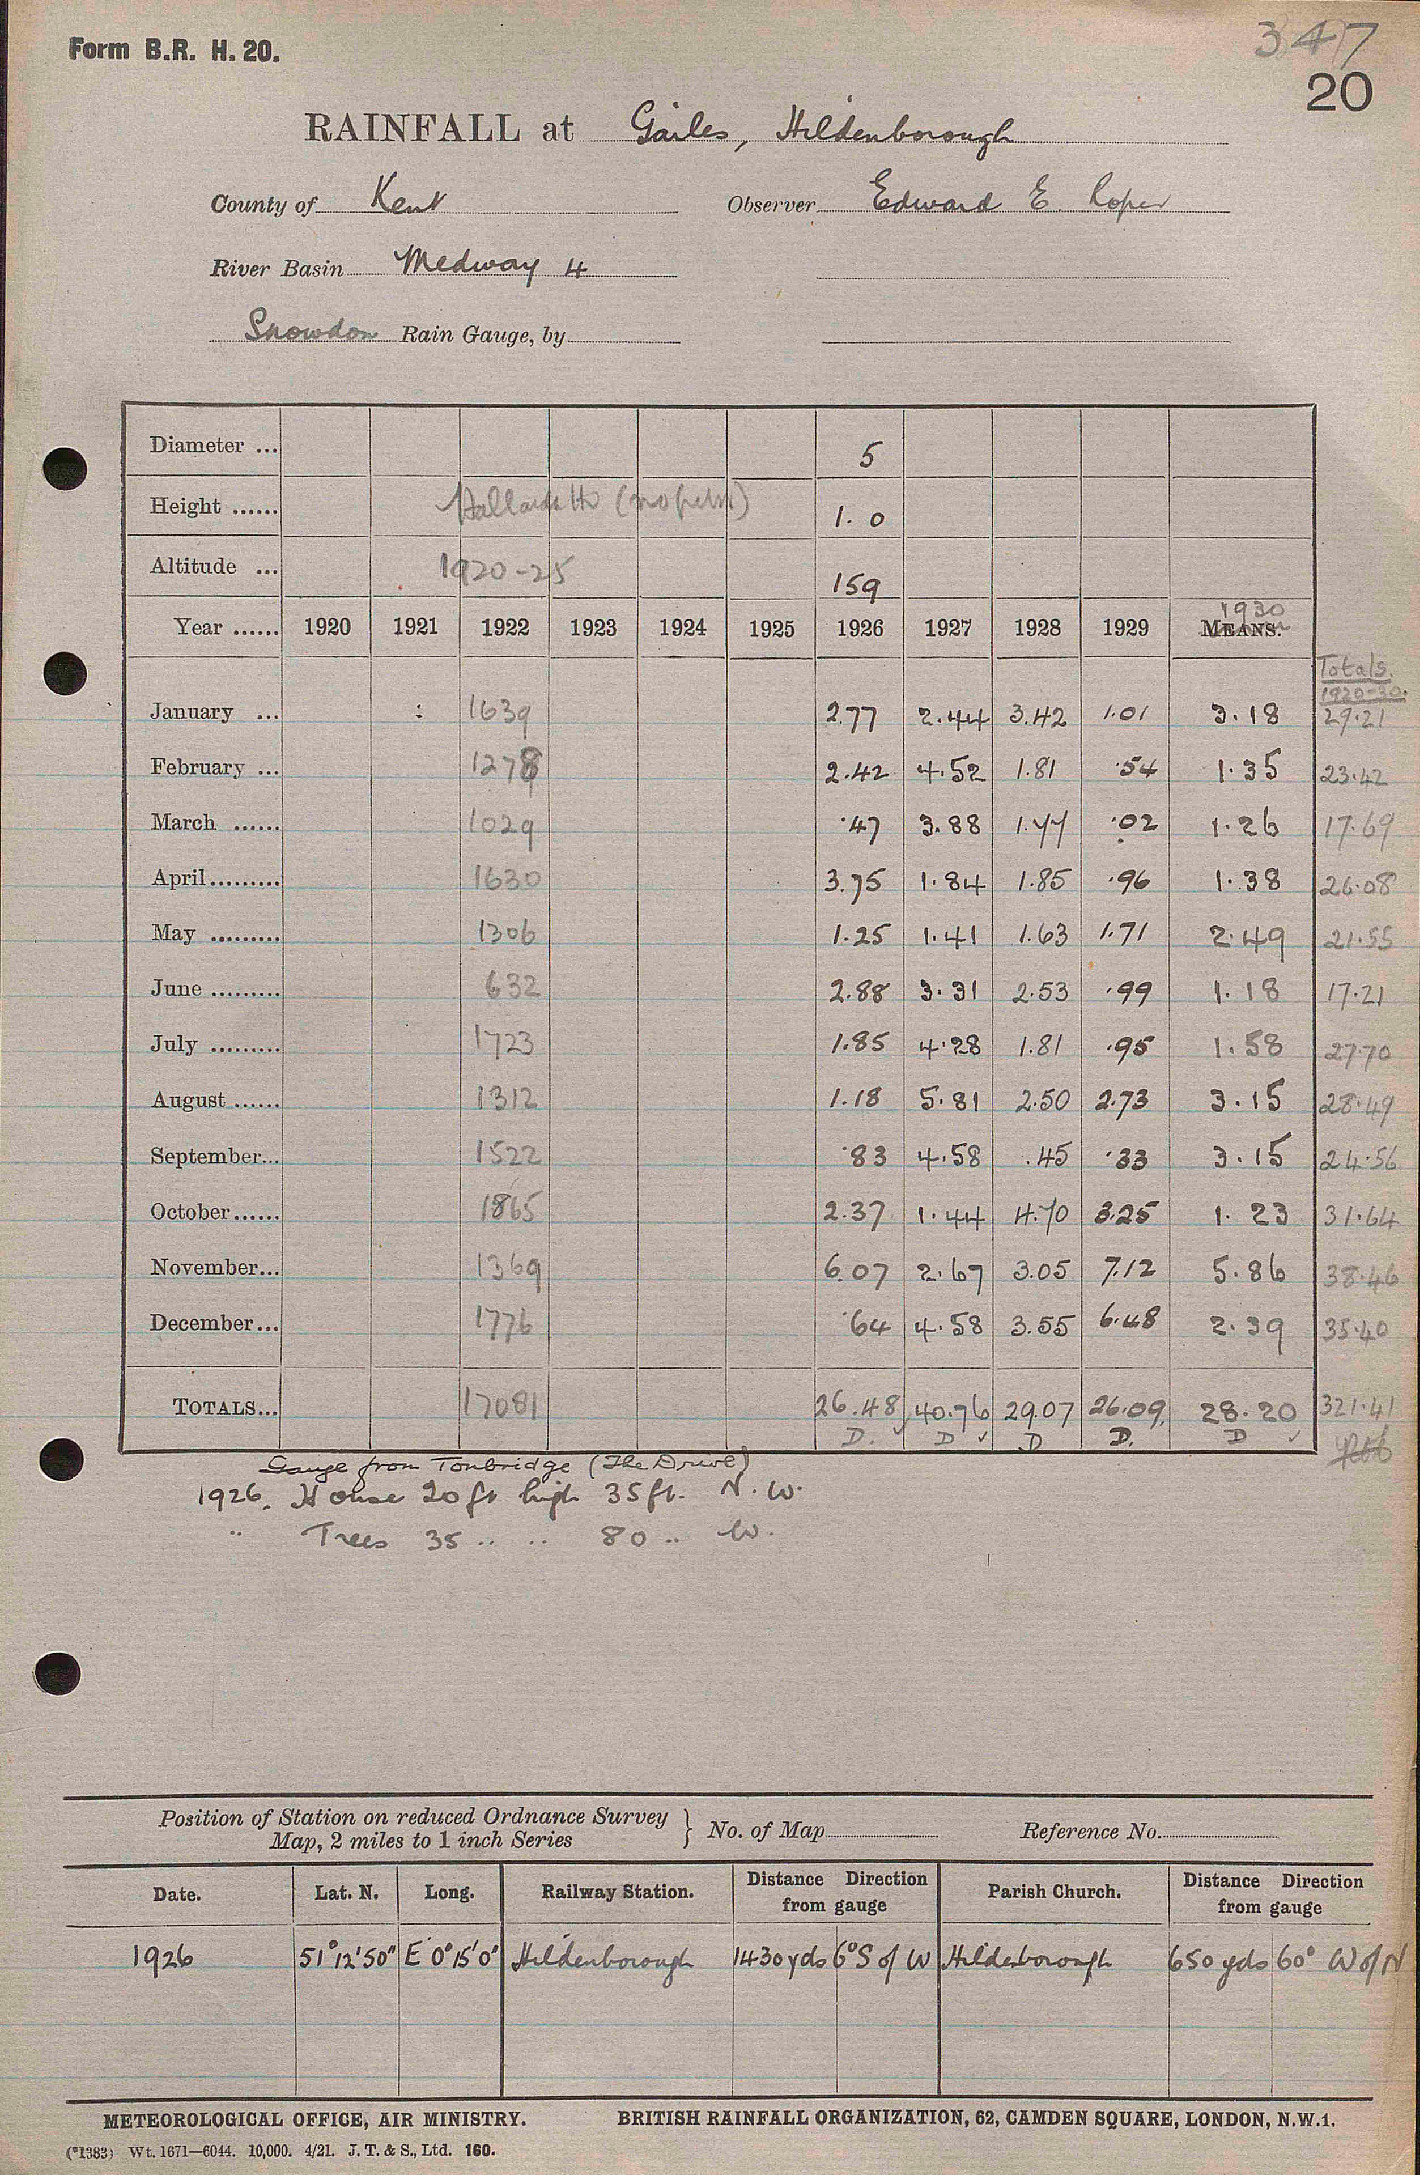 Form B.R. H. 20.
347
20
RAINFALL at Gailes, Hildenborough
County of Kent Observer Edward E Roper
River Basin Medway 4
Snowdon Rain Gauge, by
Diameter ... 5
Height ...... 1.0
Altitude ... 1920-25 159
1930
Year ...... 1920 1921 1922 1923 1924 1925 1926 1927 1928 1929 MEANS.
Totals
1920-30.
January ... 1639 2.77 2.44 3.42 1.01 3.18 29.21
February ... 1278 2.42 4.52 1.81 .54 1.35 23.42
March ...... 1029 .47 3.88 1.77 .02 1.26 17.69
April......... 1630 3.75 1.84 1.85 .96 1.38 26.08
May ......... 1306 1.25 1.41 1.63 1.71 2.49 21.55
June ......... 632 2.88 3.31 2.53 .99 1.18 17.21
July ......... 1723 1.85 4.28 1.81 .95 1.58 27.70
August ...... 1312 1.18 5.81 2.50 2.73 3.15 28.49
September... 1522 .83 4.58 .45 .33 3.15 24.56
October...... 1865 2.37 1.44 4.70 3.25 1.23 31.64
November... 1369 6.07 2.67 3.05 7.12 5.86 38.46
December... 1776 .64 4.58 3.55 6.48 2.39 35.40
TOTALS... 17081 26.48 40.76 29.07 26.09 28.20 321.41
D. D ✓ D D. D ✓
Gauge from Tonbridge (The Drive)
1926. House 20 ft high 35 ft. N.W.
" Trees 35 .. .. 80 .. W.
Position of Station on reduced Ordnance Survey
Map, 2 miles to 1 inch Series } No. of Map Reference No.
Date. Lat. N. Long. Railway Station. Distance Direction from gauge Parish Church. Distance Direction from gauge
1926 51°12'50" E 0°15'0" Hildenborough 1430 yds 6°S of W Hildenborough 650 yds 60° W of N
METEOROLOGICAL OFFICE, AIR MINISTRY. BRITISH RAINFALL ORGANIZATION, 62, CAMDEN SQUARE, LONDON, N.W.1.
(*1383) Wt. 1671—6044. 10,000. 4/21. J. T. & S., Ltd. 160.